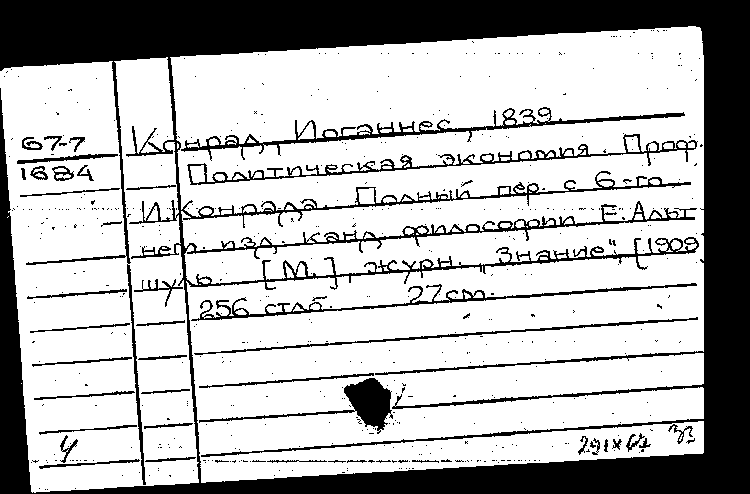 67-7
1684
Конрад, Иоганнес, 1839.
Политическая экономия. Проф.
И. Конрада. Полный пер. с 6-го
нем. изд. канд. философии Е. Альт
шуль. [М.], журн. „Знание", [1909]
256 стлб. 27см.
4
29 IX 67